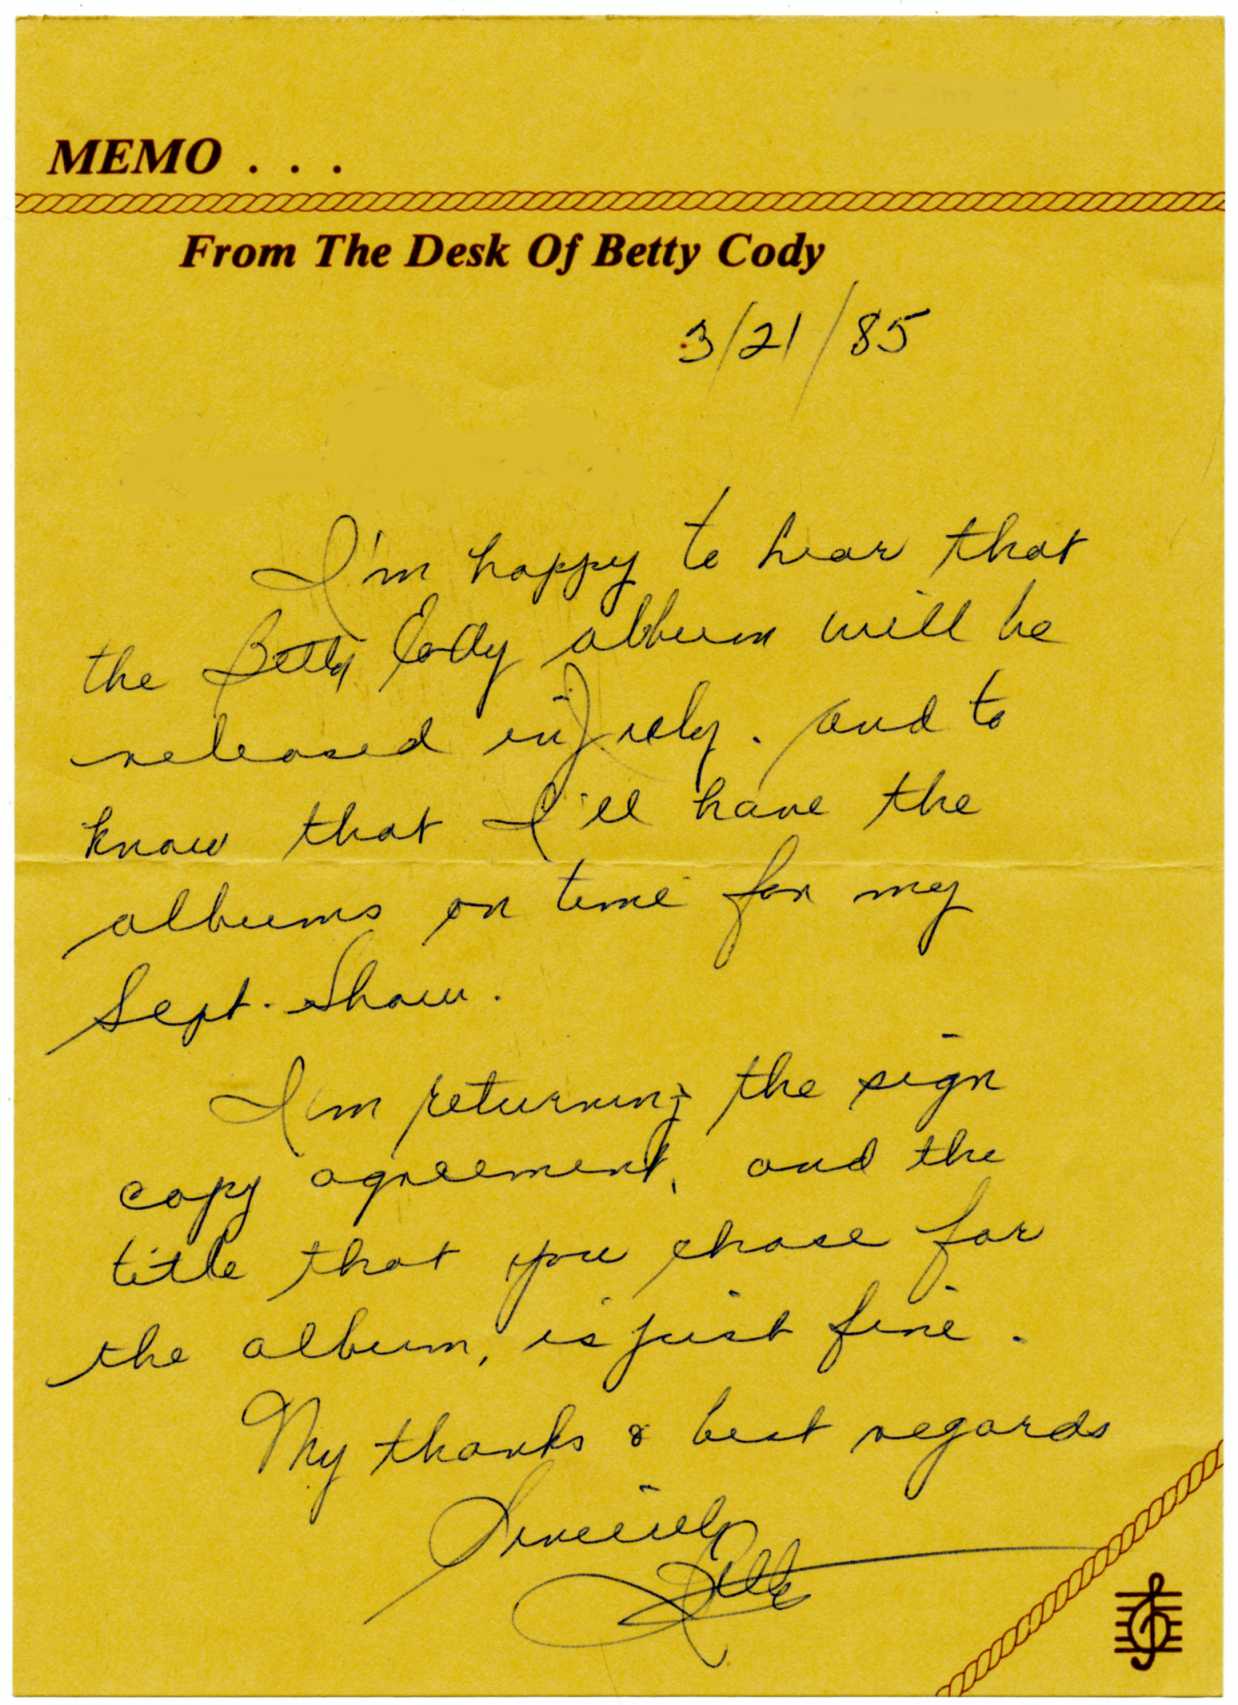 MEMO . . .
From The Desk Of Betty Cody
3/21/85
I'm happy to hear that
the Betty Cody album will be
released in July. and to
know that I'll have the
albums on time for my
Sept. Show.
I'm returning the sign
copy agreement, and the
title that you chose for
the album, is just fine.
My thanks & best regards
Sincerely
Betty